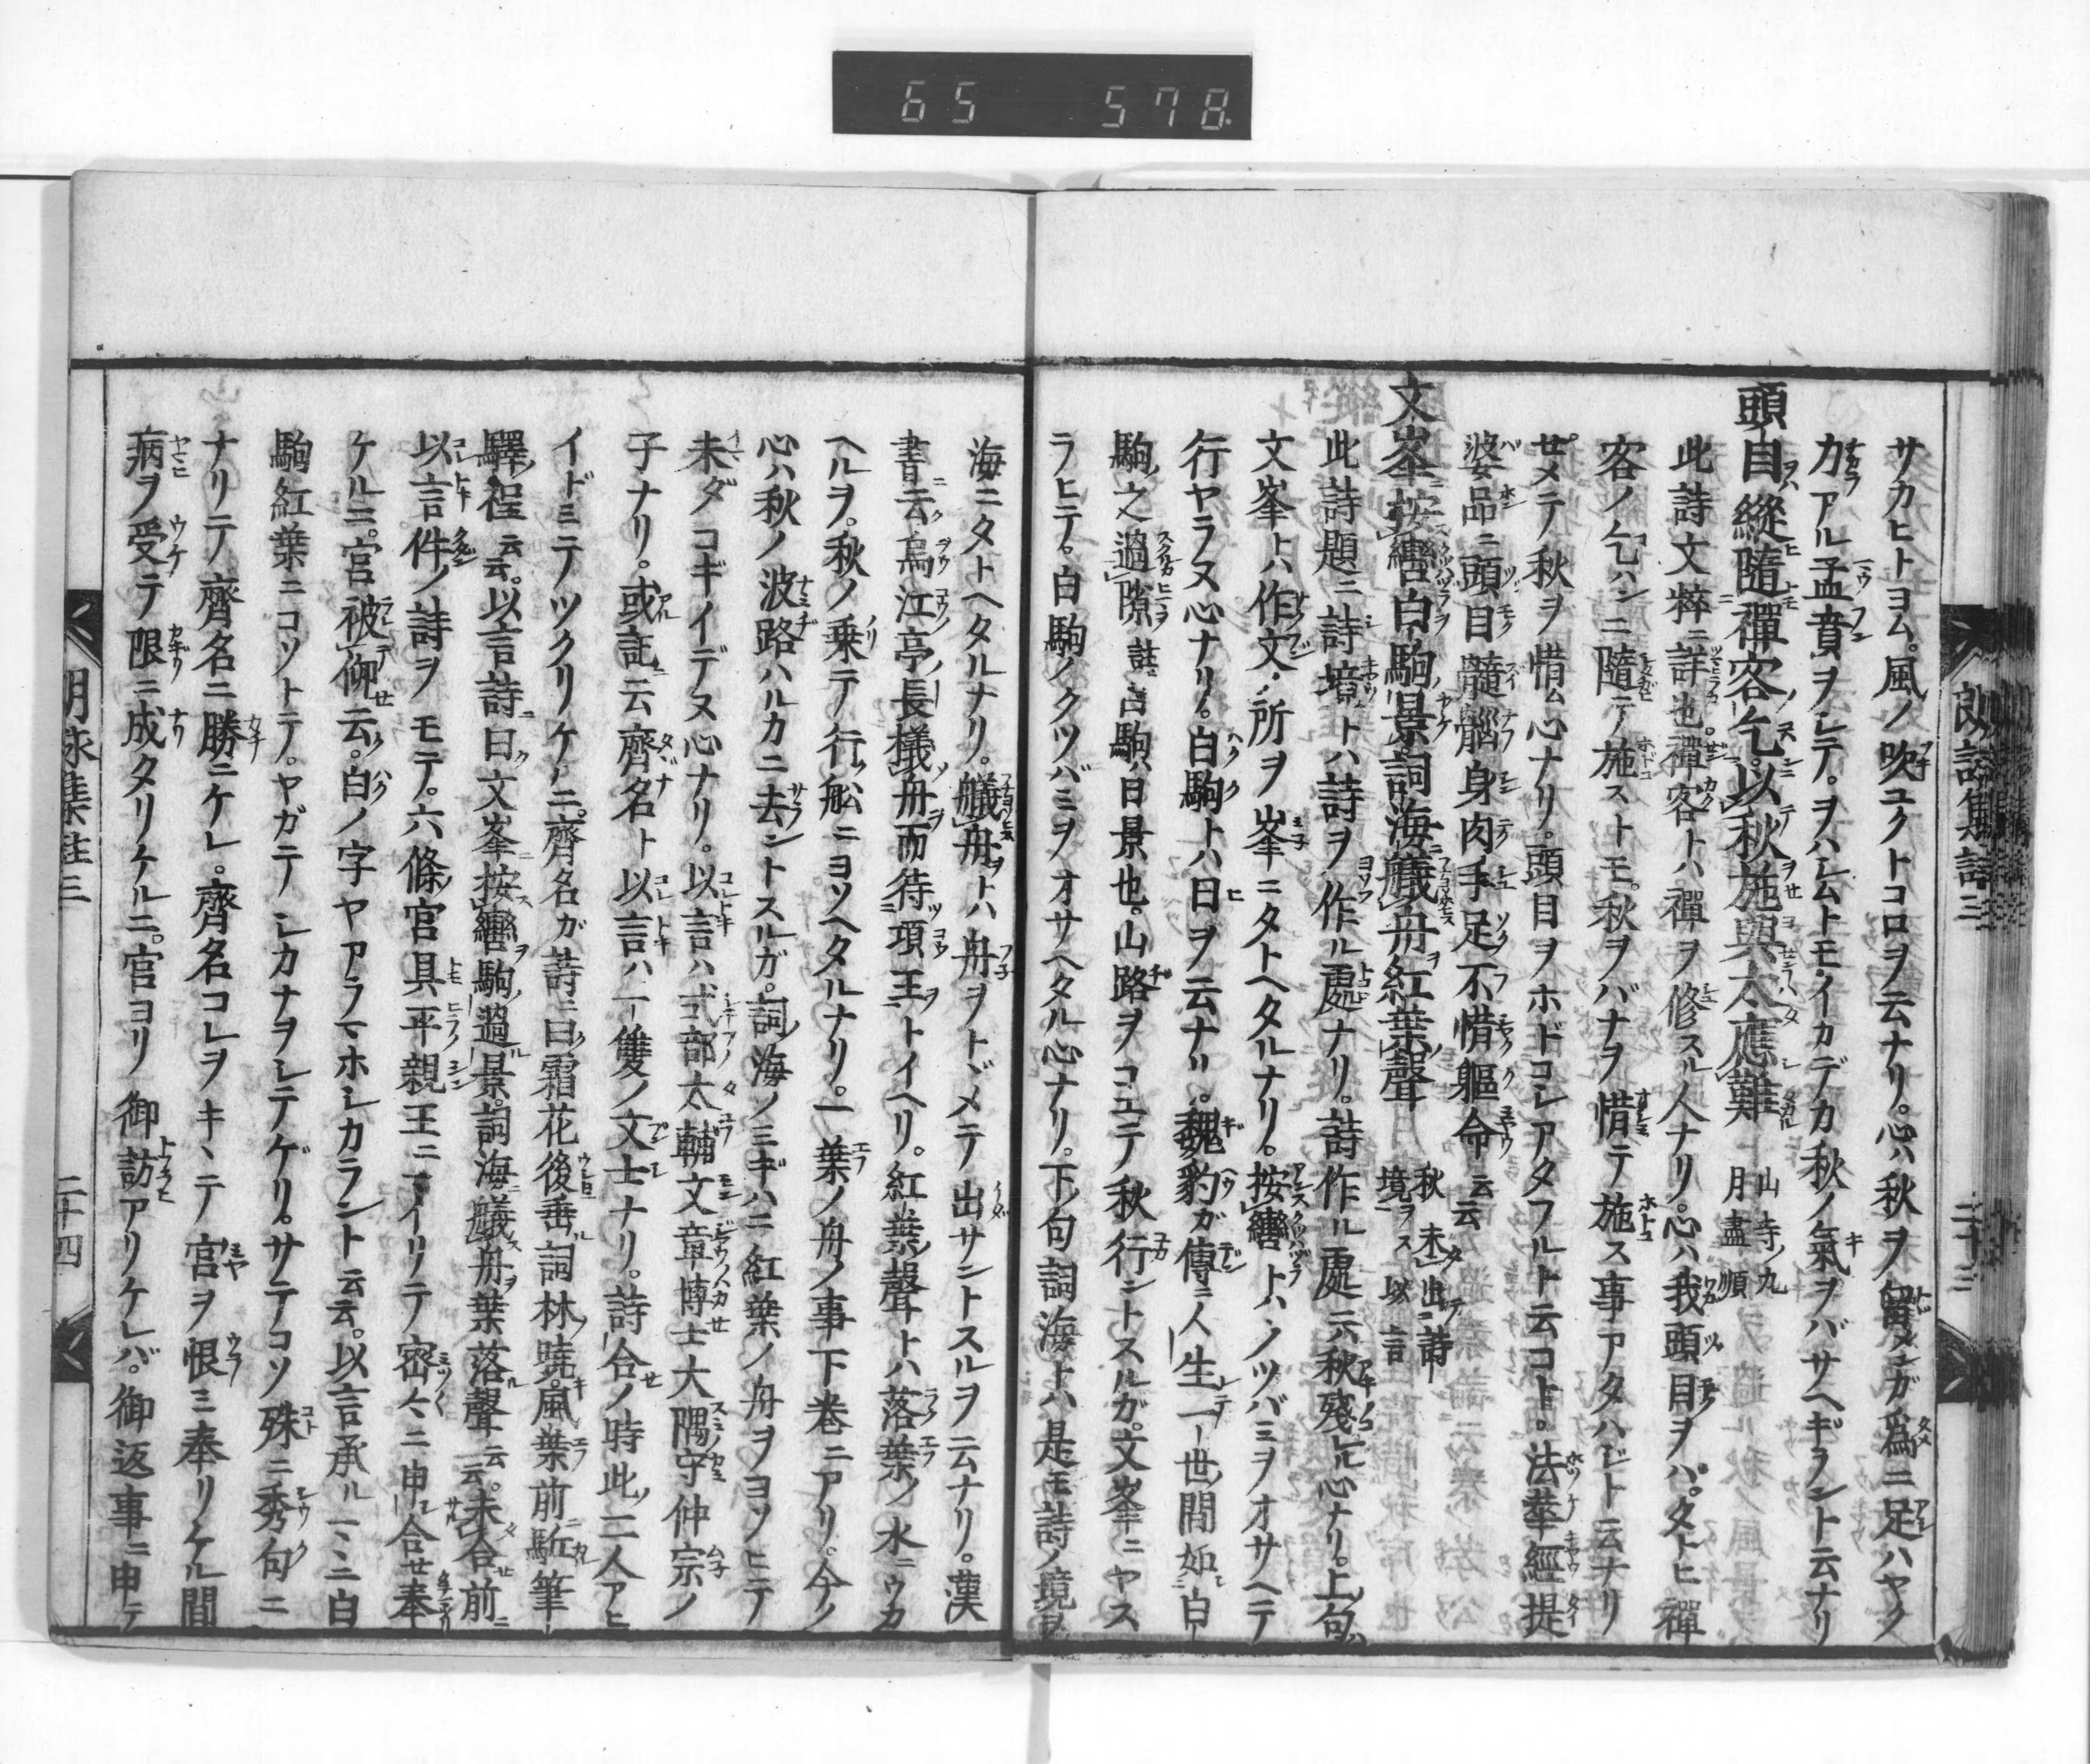 65 578
サカヒトヨム。風ノ吹ユクトコロヲ云ナリ。心ハ秋ヲ留メンガ爲ニ足ハヤク
力アル孟賁ヲシテ。ヲハシムトモ。イカデカ秋ノ氣ヲバサヘギラント云ナリ
頭目縱隨禪客乞。以秋施與太應難 山寺ノ九月盡 順
此詩文粹ニ詳也。禪客トハ禪ヲ修スル人ナリ。心ハ我頭目ヲハ。タトヒ禪
客ノ乞ハンニ隨テ施ストモ。秋ヲバナヲ惜テ施ス事アタハジト云ナリ
せメテ秋ヲ惜ム心ナリ。頭目ヲホドコシアタフルト云コト。法華經提
婆品ニ頭目髓腦身肉手足不惜軀命云云
文峯按轡白駒景詞海艤舟紅葉聲 秋未出詩境 以言
此詩題ニ詩境トハ詩ヲ作ル處ナリ。詩作ル處ニ秋殘レル心ナリ。上句ハ
文峯トハ作文ノ所ヲ峯ニタトヘタルナリ。按轡トハ。ノツバミヲオサヘテ
行ヤラヌ心ナリ。白駒トハ日ヲ云ナリ。魏豹ガ傳ニ人生一世ノ間如白
駒之過隙註白駒ハ日景也。山路ヲコエテ秋行ントスルガ。文峯ニヤス
ラヒテ。白駒ノクツバミヲオサヘタル心ナリ。下ノ句詞海トハ是モ詩ノ境ヲ
朗詠集註三 二十三
海ニタトヘタルナリ。艤舟トハ舟ヲトヾメテ出サントスルヲ云ナリ。漢
書云。烏江亭長艤舟而待項王トイヘリ。紅葉聲トハ落葉ノ水ニウカ
ヘルヲ。秋ノ乗テ行舩ニヨソヘタルナリ。一葉ノ舟ノ事下巻ニアリ。今ノ
心ハ秋ノ波路ハルカニ去ントスルガ。詞海ノミギハニ紅葉ノ舟ヲヨソヒテ
未ダコギイデヌ心ナリ。以言ハ式部太輔文章博士大隅守仲宗ノ
子ナリ。或記云齊名ト以言ハ一雙ノ文士ナリ。詩合ノ時此二人アヒ
イドミテツクリケルニ。齊名ガ詩ニ曰霜花後垂詞林曉。風葉前駈筆
驛程云云。以言詩曰文峯按轡駒過景。詞海艤舟葉落聲云云。未合前ニ
以言件ノ詩ヲモテ。六條宮具平親王ニマイリテ密々ニ申合せ奉
ケルニ。宮被仰云。白ノ字ヤアラマホシカラント云云。以言承ルマヽニ白
駒紅葉ニコソトテ。ヤガテシカナヲシテゲリ。サテコソ殊ニ秀句ニ
ナリテ齊名ニ勝ニケレ。齊名コレヲキヽテ宮ヲ恨ミ奉リケル間
病ヲ受テ限ニ成タリケルニ。宮ヨリ御訪アリケレバ。御返事ニ申テ
朗詠集註三 二十四